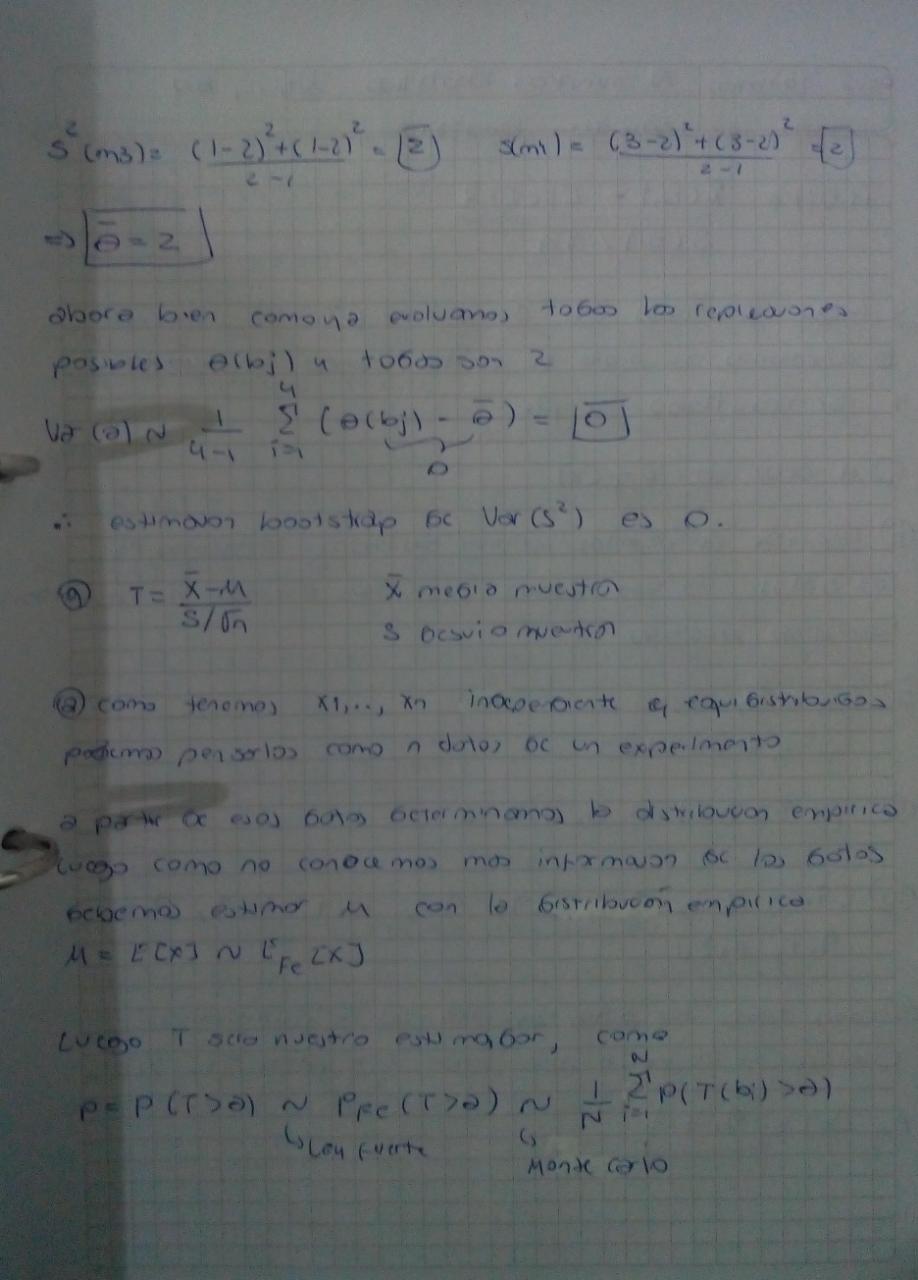 S²(m3) = ((1-2)² + (1-2)²)/(2-1) = 2    S(m4) = ((3-2)² + (3-2)²)/(2-1) = 2
⇒ θ̄ = 2
ahora bien como ya evaluamos todas las replicaciones
posibles θ(bj) y todos son 2
Va(θ) ~ 1/(4-1) Σ_{i=1}^{4} (θ(bj) - θ̄) = 0
0
∴ estimacion bootstrap de Var(S²) es 0.
9) T = (X̄-μ)/(S/√n)    X̄ media muestral
S desvio muestral
a) como tenemos X1,..., Xn independiente e equidistribuidos
podemos pensarlos como n datos de un experimento
a partir de esos datos determinamos la distribucion empirica
Luego como no conocemos mas informacion de los datos
debemos estimar μ con la distribución empirica
μ = E[X] ~ E_Fe[X]
Luego T sera nuestro estimador, como
p = P(T>a) ~ P_Fe(T>a) ~ 1/N Σ_{i=1}^{N} P(T(bi)>a)
↳ Ley fuerte    ↳
Monte carlo